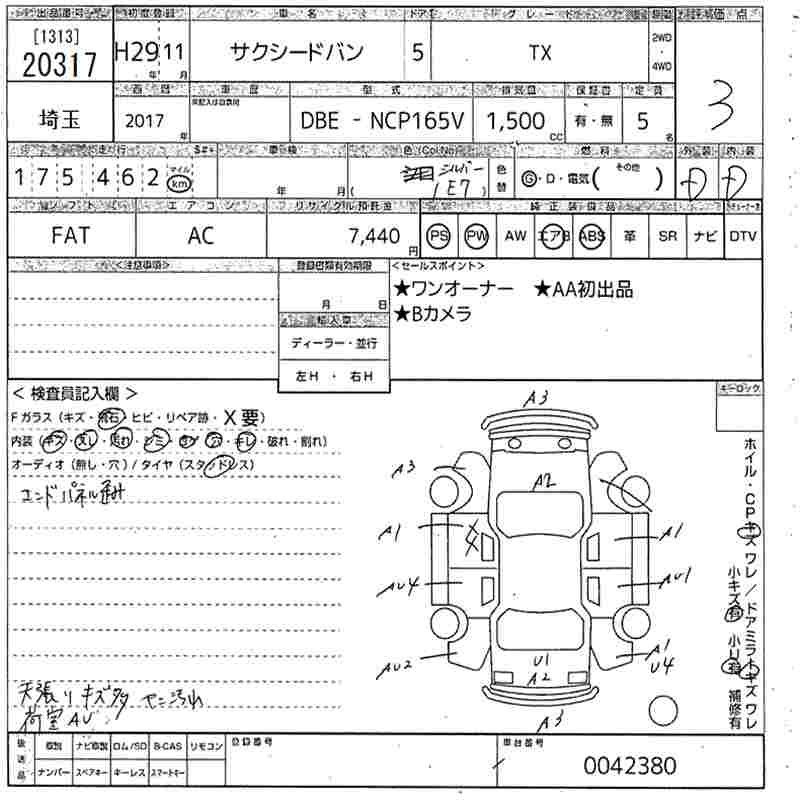 出品番号 初度登録 車名 ドア グレード 駆動 評価点
[1313]
20317 H29 11 サクシードバン 5 TX 2WD ・ 4WD 3
年 月
西暦 車歴 型式 排気量 保証書 定員
埼玉 2017 年 DBE - NCP165V 1,500 CC 有・無 5 名
走行 車検 色(Col No) 燃料 外装 内装
175,462 マイル km 年 月( シルバー 1E7 ) 色替 G・D・電気( その他 ) D D
シフト エアコン リサイクル預託金 純正装備品
FAT AC 7,440 円 PS PW AW エアB ABS 革 SR ナビ DTV
<注意事項> 登録書類有効期限 <セールスポイント>
月 日
★ワンオーナー ★AA初出品
★Bカメラ
輸入車
ディーラー・並行
左H ・ 右H
< 検査員記入欄 > キーロック
Fガラス (キズ・飛石・ヒビ・リペア跡・X要)
内装 (キズ・スレ・汚れ・シミ・コゲ・穴・キレ・破れ・割れ)
オーディオ (無し・穴) / タイヤ (スタッドレス)
エンドパネル歪み
A3
A3
A2
A1 A1
AU4 AU1
AU2 U1 A1
A2 U4
A3
ホイル・CPキズ ワレ / ドアミラーキズ ワレ
小キズ有 小U有 補修有
天張りキズ多 ヤニ汚れ
荷室AU
後送品 取説 ナビ取説 ロム/SD B-CAS リモコン 登録番号 車台番号
ナンバー スペアキー キーレス スマートキー 0042380